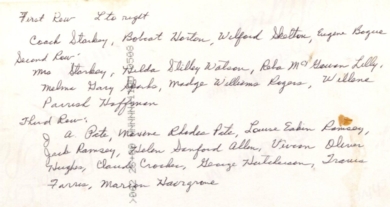 First Row L to right
Coach Starkey, Bobcat Norton, Wilford Skelton, Eugene Bogue
Second Row-
Mrs Starkey, Hilda Stilley Watson, Reba McGowan Lilly,
Melma Gary Sparks, Madge Williams Rogers, Willene
Parrish Hoffman
Third Row:
A. Pate, Maxene Rhodes Pate, Laura Eakin Ramsey,
Jack Ramsey, Helen Sanford Allen, Vivian Oliver
Hughes, Claude Crosker, George Hutcherson, Travis
Farris, Marion Hargrove